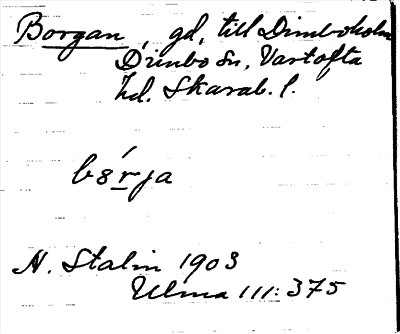 Borgan, gd, till Dimboholm
Dimbo sn, Vartofta
hd. Skarab. l.
bórja
N. Stalin 1903
Ulma 111:375